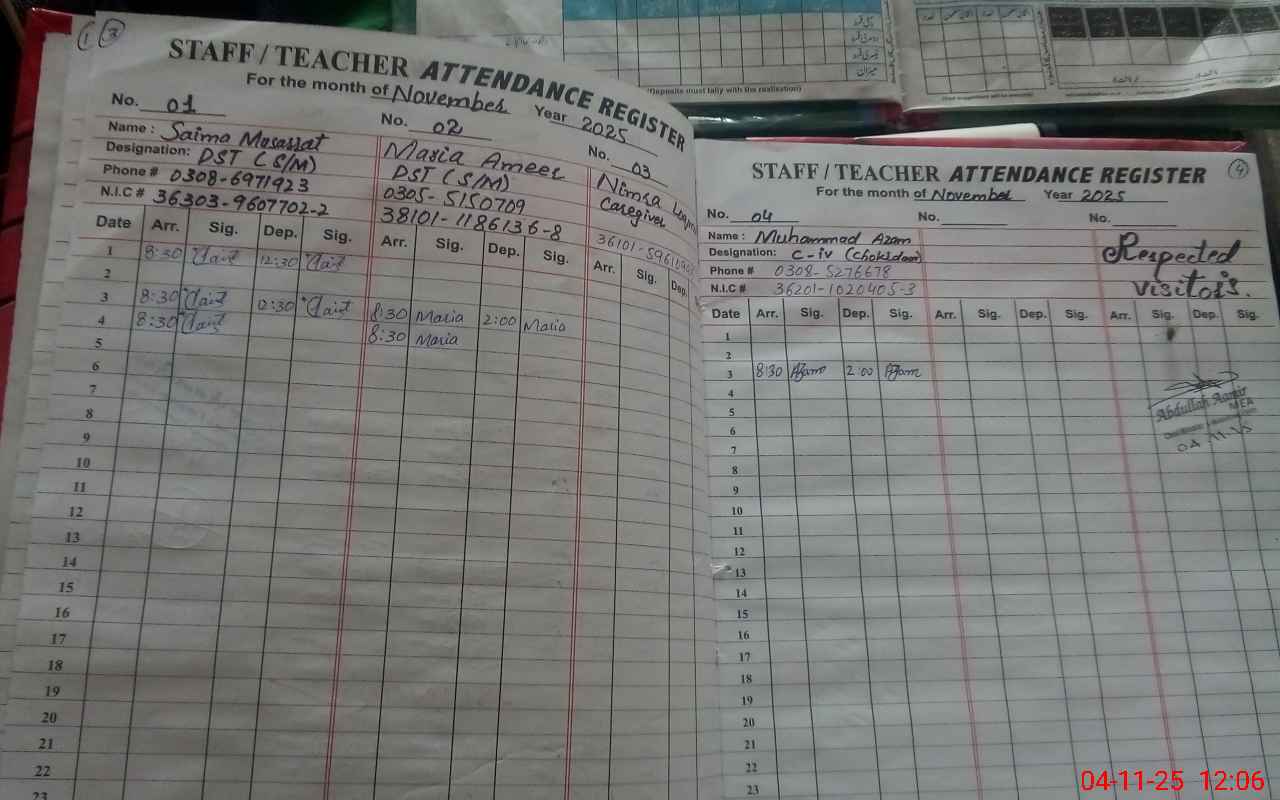 1 3
STAFF / TEACHER ATTENDANCE REGISTER
For the month of November Year 2025
No. 01 No. 02 No. 03
Name : Saima Musarrat Maria Ameer Nimra
Designation: PST (S/M) PST (S/M) Caregiver
Phone # 0308-6971923 0305-5150709
N.I.C # 36303-9607702-2 38101-1186136-8
Date Arr. Sig. Dep. Sig. Arr. Sig. Dep. Sig. Arr. Sig. Dep.
1 8:30 12:30
2
3 8:30 12:30 8:30 Maria 2:00 Maria
4 8:30 8:30 Maria
5
6
7
8
9
10
11
12
13
14
15
16
17
18
19
20
21
22
23
(Deposits must tally with the realisation)
STAFF / TEACHER ATTENDANCE REGISTER 4
For the month of November Year 2025
No. 04 No. No.
Name : Muhammad Azam Respected
Designation: C-iv (Chokidar) visitors.
Phone # 0308-5276678
N.I.C # 36201-1020405-3
Date Arr. Sig. Dep. Sig. Arr. Sig. Dep. Sig. Arr. Sig. Dep. Sig.
1
2
3 8:30 Azam 2:00 Azam
4
5
6
7
8
9
10
11
12
13
14
15
16
17
18
19
20
21
22
23
Abdullah Aamir
MEA
04-11-25
04-11-25 12:06